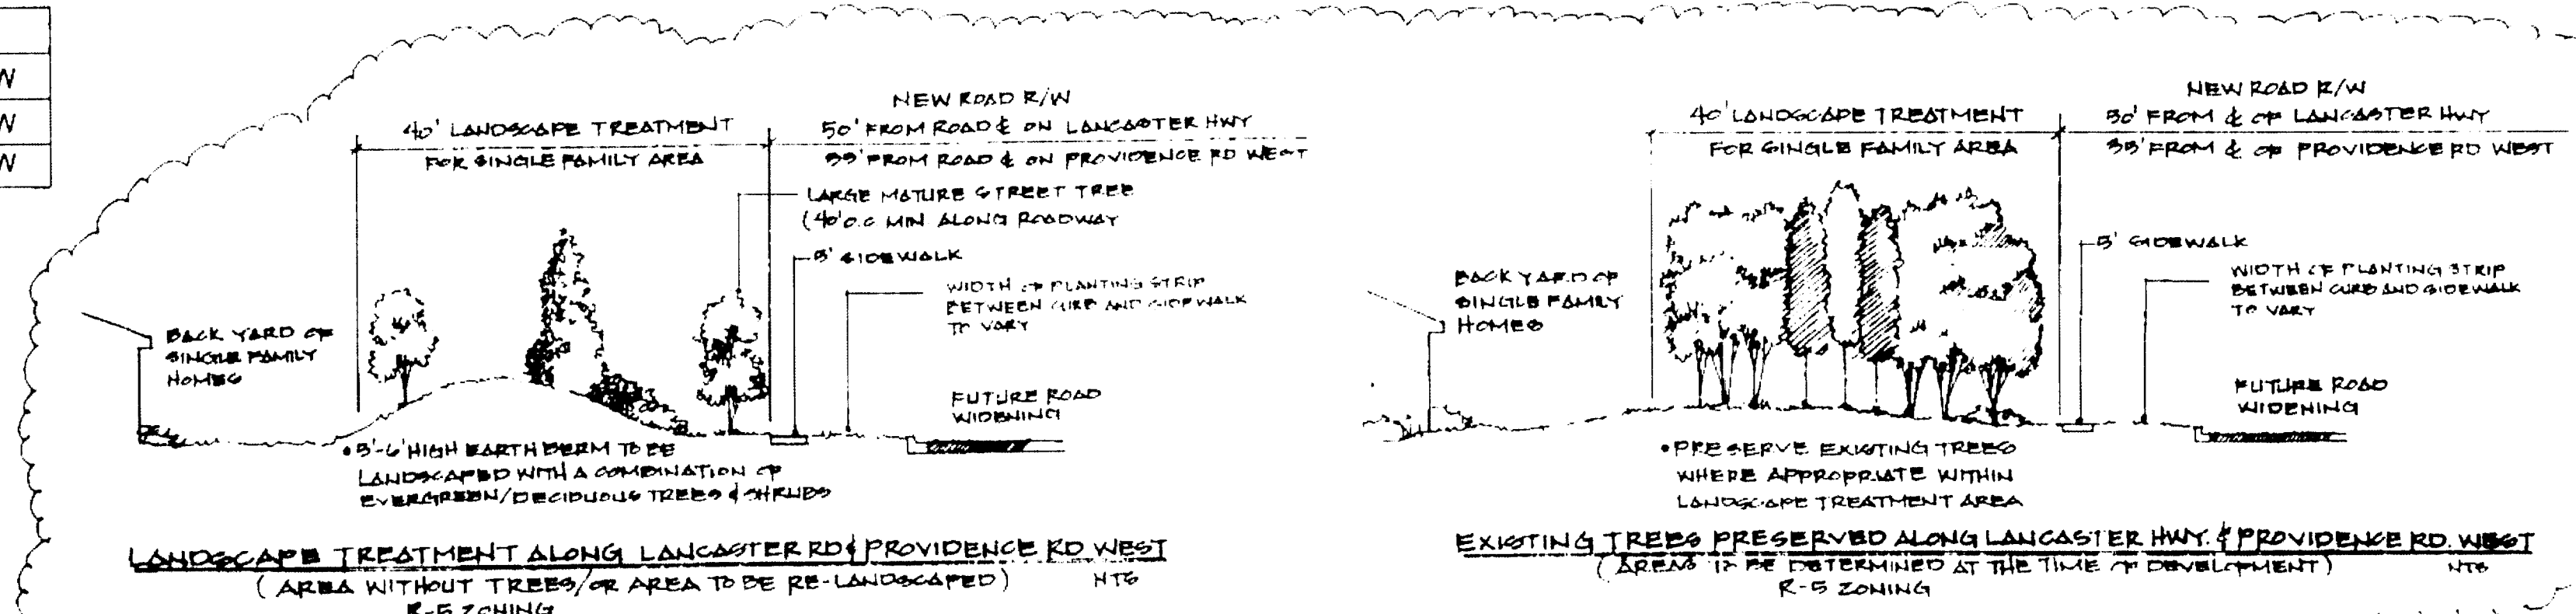 W
W
W
40' LANDSCAPE TREATMENT
FOR SINGLE FAMILY AREA
NEW ROAD R/W
50' FROM ROAD ℄ ON LANCASTER HWY
35' FROM ROAD ℄ ON PROVIDENCE RD WEST
LARGE MATURE STREET TREE
(40' O.C MIN ALONG ROADWAY
5' SIDEWALK
WIDTH OF PLANTING STRIP
BETWEEN CURB AND SIDEWALK
TO VARY
BACK YARD OF
SINGLE FAMILY
HOMES
FUTURE ROAD
WIDENING
•5'-6' HIGH EARTH BERM TO BE
LANDSCAPED WITH A COMBINATION OF
EVERGREEN/DECIDUOUS TREES & SHRUBS
LANDSCAPE TREATMENT ALONG LANCASTER RD & PROVIDENCE RD WEST
(AREA WITHOUT TREES/OR AREA TO BE RE-LANDSCAPED) NTS
R-5 ZONING
40' LANDSCAPE TREATMENT
FOR SINGLE FAMILY AREA
NEW ROAD R/W
50' FROM ℄ OF LANCASTER HWY
35' FROM ℄ OF PROVIDENCE RD WEST
5' SIDEWALK
WIDTH OF PLANTING STRIP
BETWEEN CURB AND SIDEWALK
TO VARY
BACK YARD OF
SINGLE FAMILY
HOMES
FUTURE ROAD
WIDENING
•PRESERVE EXISTING TREES
WHERE APPROPRIATE WITHIN
LANDSCAPE TREATMENT AREA
EXISTING TREES PRESERVED ALONG LANCASTER HWY. & PROVIDENCE RD. WEST
(AREAS TO BE DETERMINED AT THE TIME OF DEVELOPMENT) NTS
R-5 ZONING